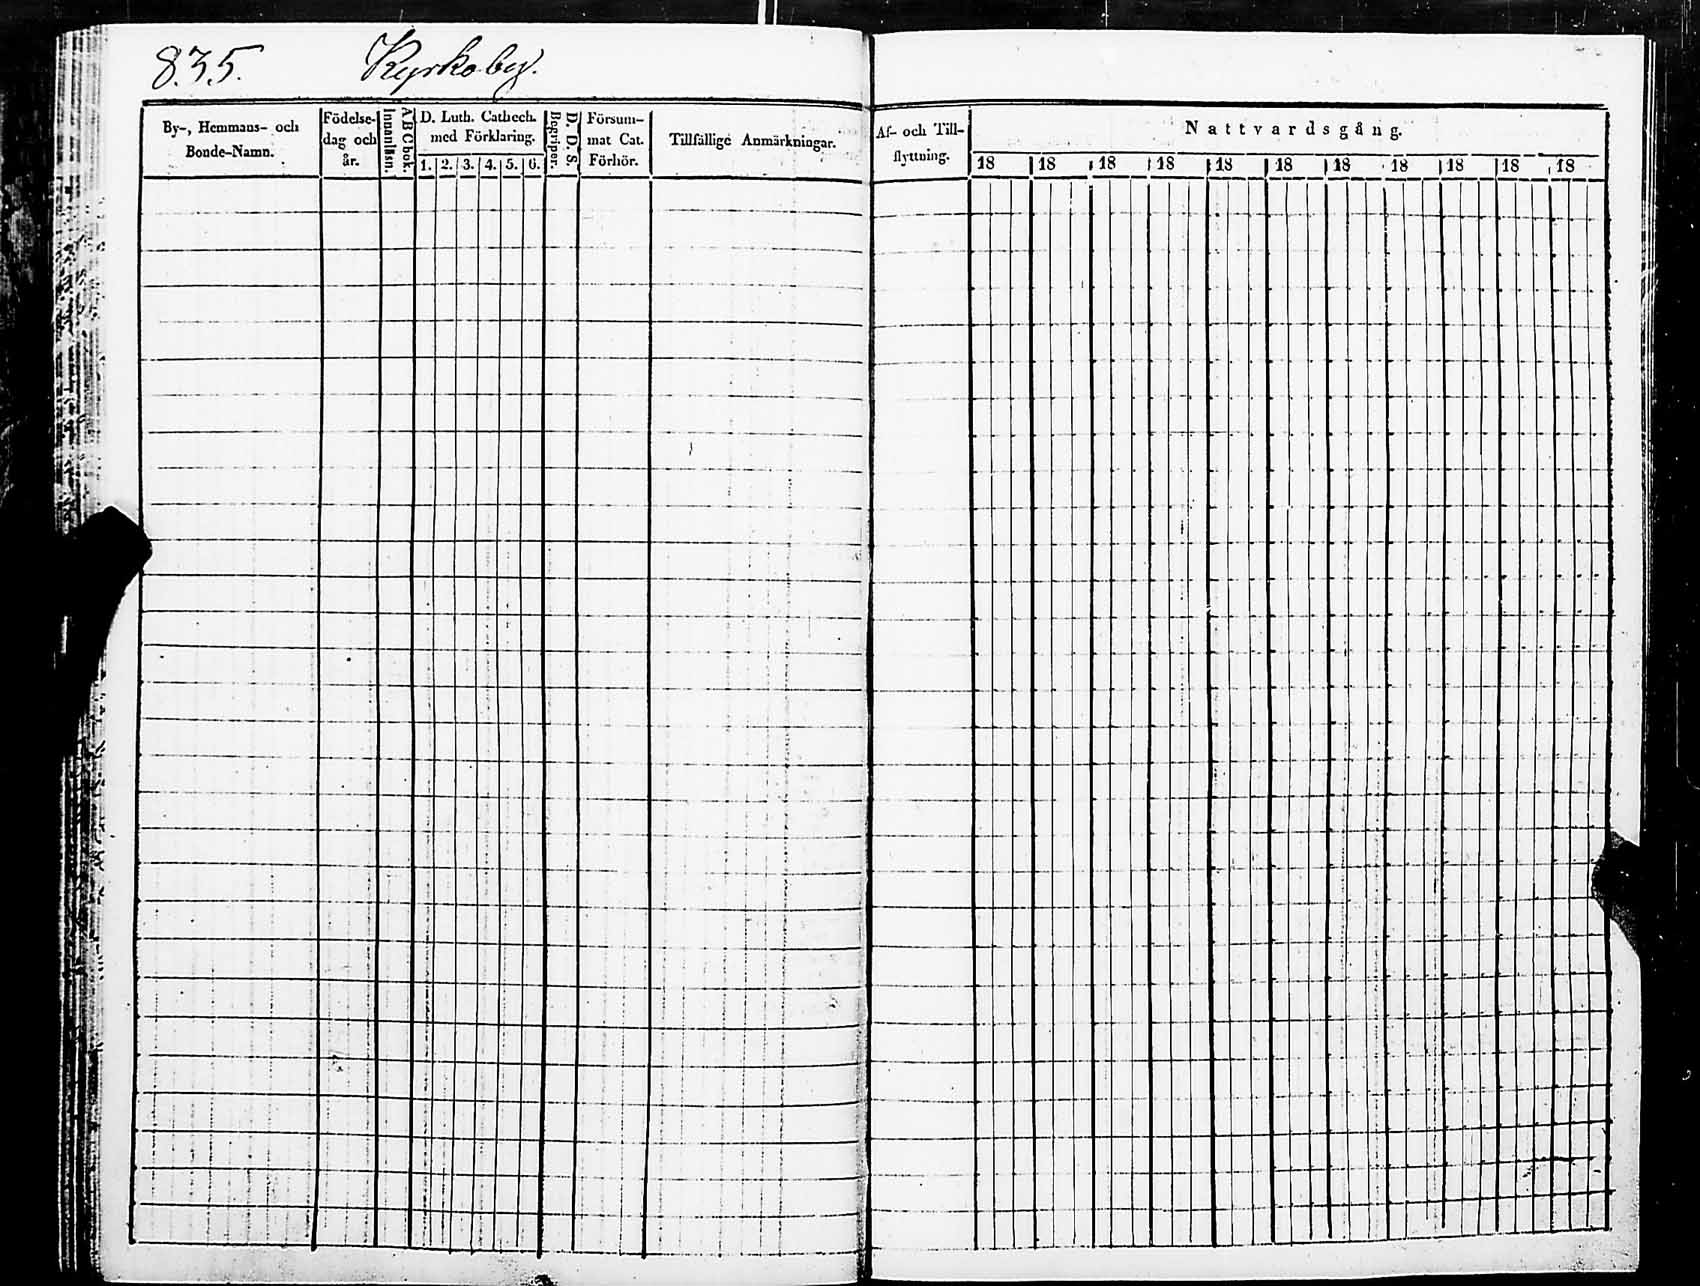 835. Kyrkoby.
By-, Hemmans- och
Bonde-Namn.
Födelse-
dag och
år.
Innanläsn.
ABCbok.
D. Luth. Cathech.
med Förklaring.
1. 2. 3. 4. 5. 6.
Begriper.
D. D. S.
Försum-
mat Cat.
Förhör.
Tillfällige Anmärkningar.
Af- och Till-
flyttning.
Nattvardsgång.
18 18 18 18 18 18 18 18 18 18 18